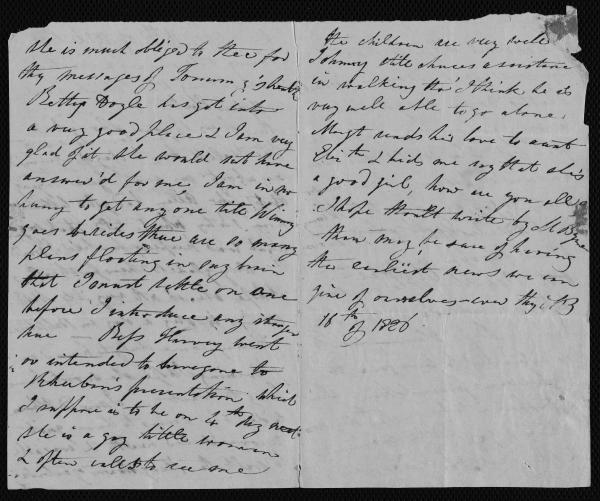 she is much obliged to thee for
thy messages of Tommy's health
Betty Doyle has got into
a very good place & I am very
glad of it she would not have
answer'd for me, I am in no
hurry to get any one till Winny
goes besides there are so many
plans floating in my brain
that I cannot settle on one
before I introduce any stranger
here — Bess Harvey went
or intended to have gone to
presentation which
I suppose is to be on 4th day next
she is a gay little woman
& often calls to see me
the children are very well
Johnny still chuses assistance
in walking tho' I think he is
very well able to go alone,
Margt sends his love to aunt
Elizth & bids me say that she is
a good girl, how are you all
I hope thou'lt write by
thou may be sure of having
the earliest news we can
give of ourselves ever thy
16th of 1826